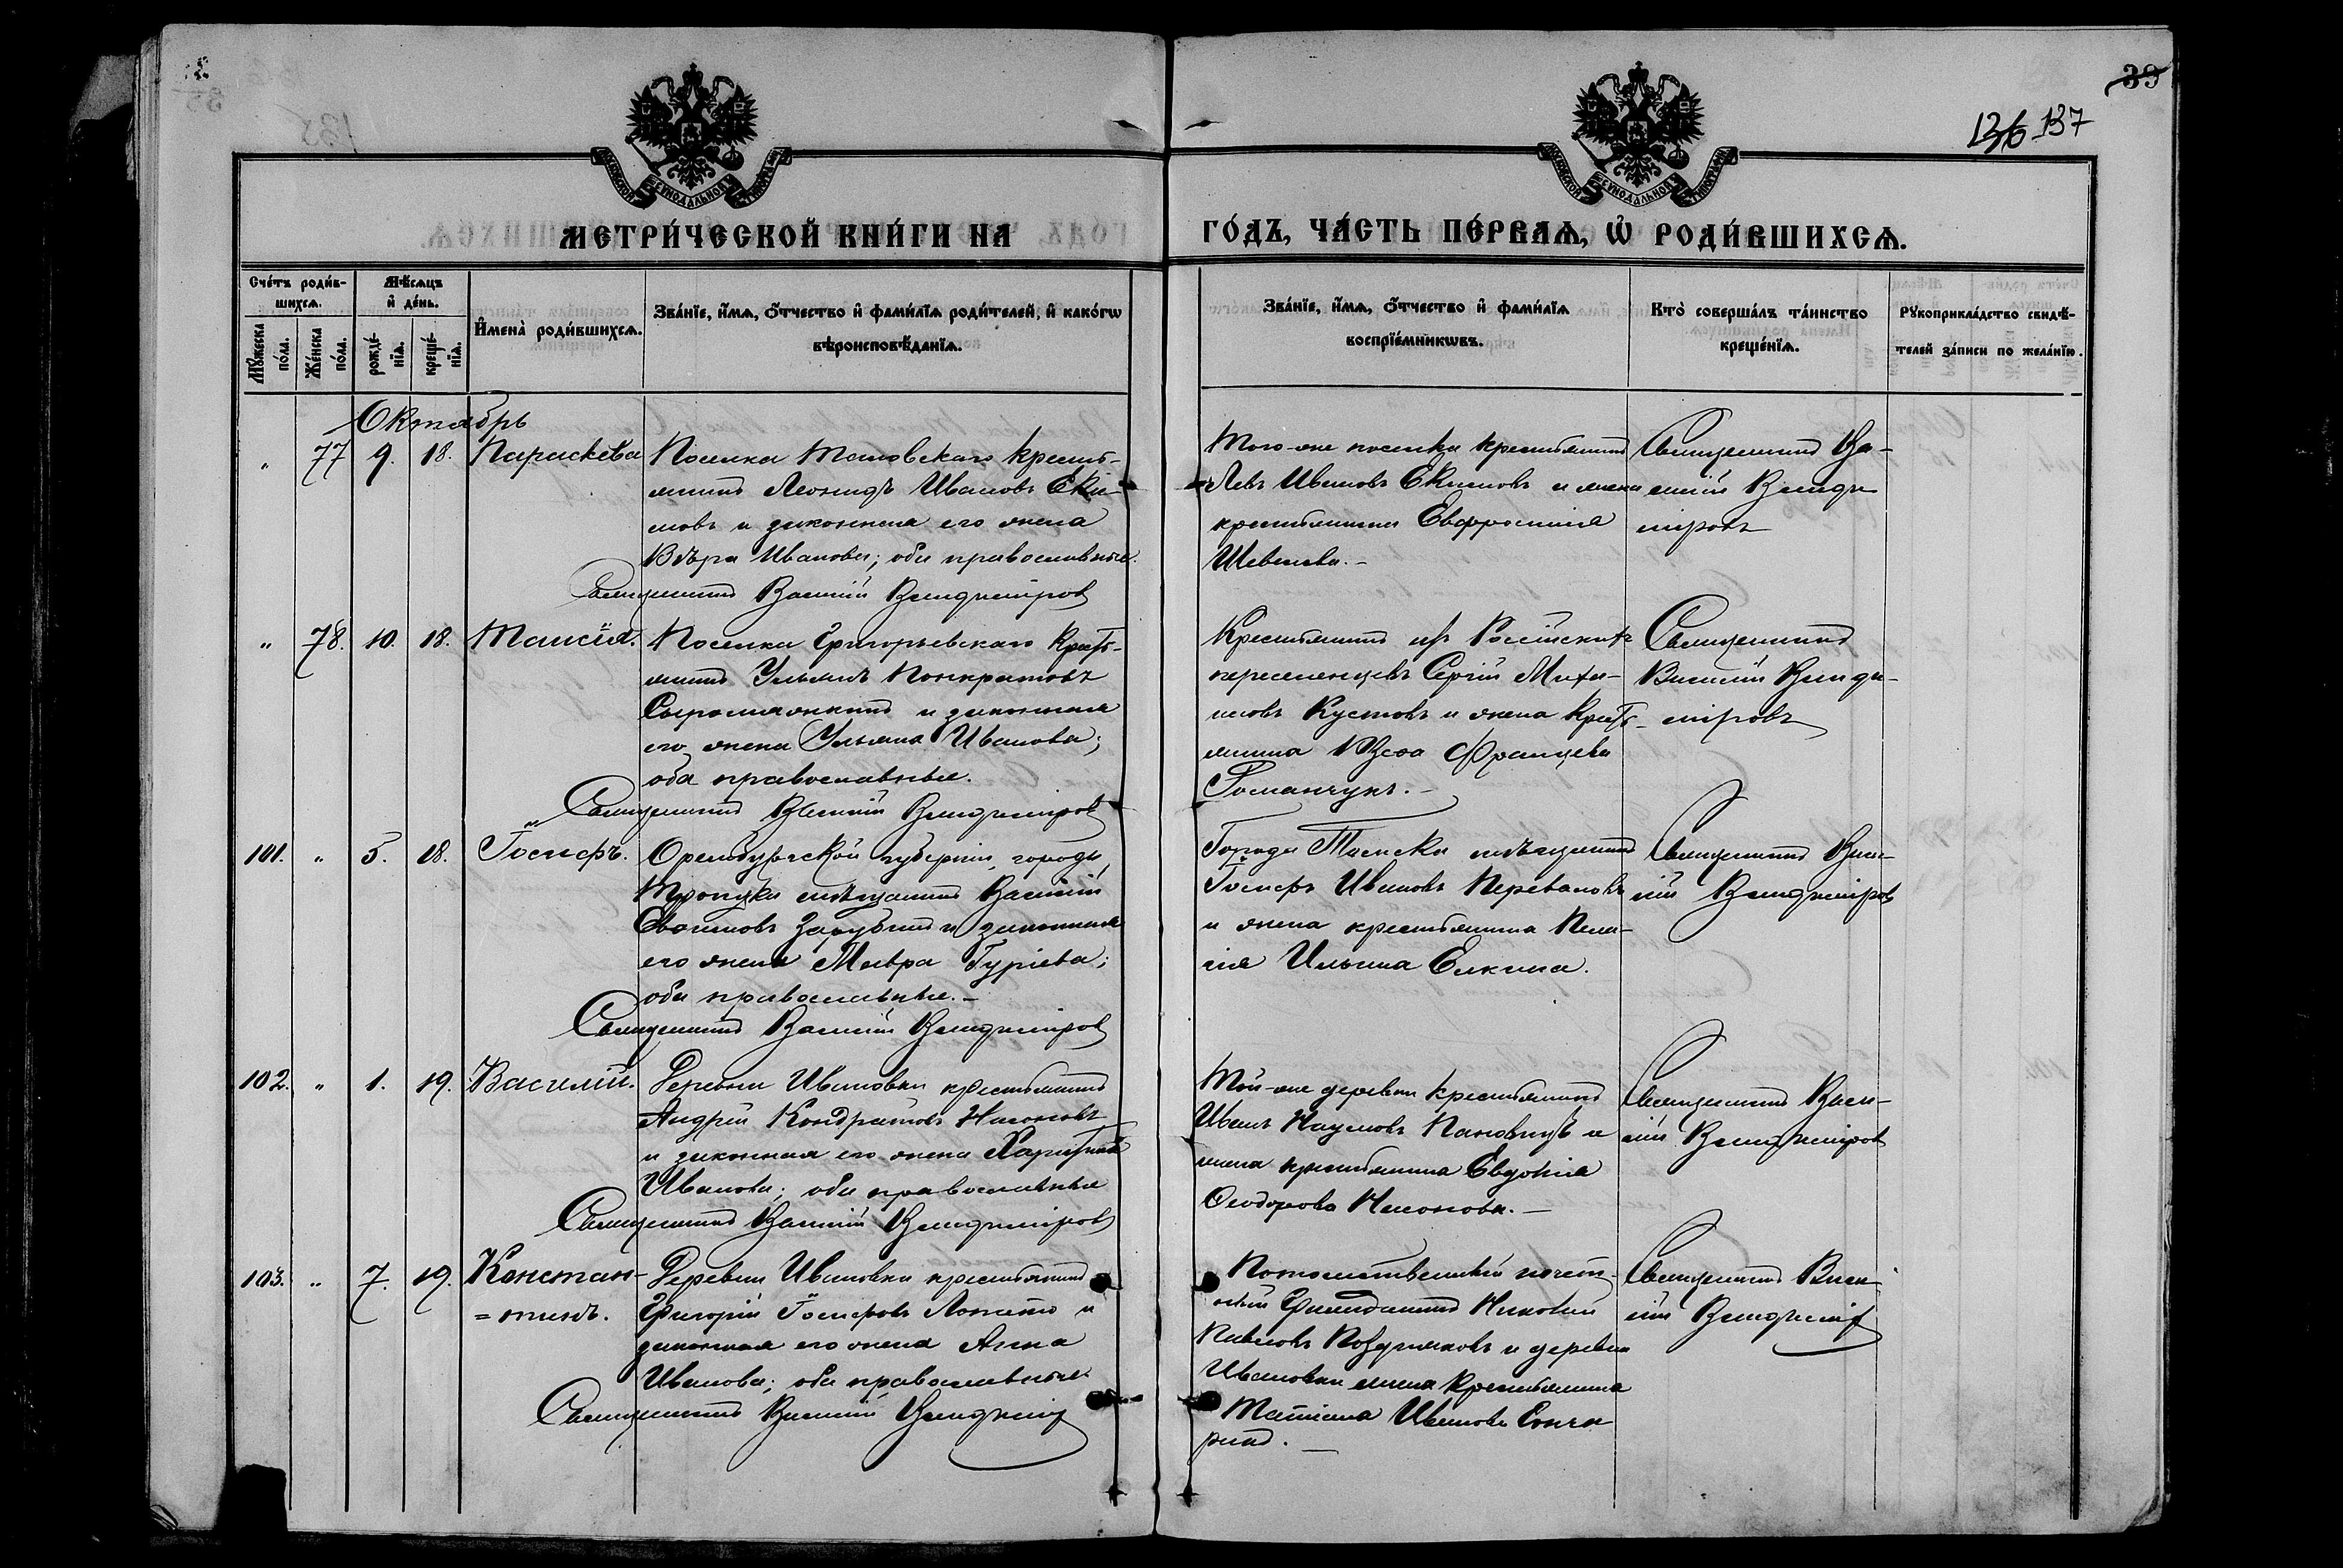 39
136 137
МЕТРИ́ЧЕСКОЙ КНИ́ГИ НА
ГО́ДЪ, ЧА́СТЬ ПЕ́РВАѦ, Ѡ҆ РОДИ́ВШИХСѦ.
Сче́тъ роди́в-
шихсѧ.
Мѣ́сѧцъ
и҆ де́нь.
Мꙋ́жеска
по́ла.
Же́нска
по́ла.
рожде́-
нїѧ.
креще́-
нїѧ.
И҆мена̀ роди́вшихсѧ.
Зва́нїе, и҆́мѧ, ѻ҆́тчество и҆ фами́лїѧ роди́телей, и҆ како́гѡ
вѣроисповѣ́данїѧ.
Зва́нїе, и҆́мѧ, ѻ҆́тчество и҆ фами́лїѧ
воспрїе́мникѡвъ.
Кто̀ соверша́лъ та́инство
креще́нїѧ.
Рꙋкоприкла́дство свидѣ́-
телей за́писи по жела́нїю.
Октябрь
" 77 9. 18. Параскева
Поселка Таловскаго кресть-
янинъ Леонидъ Ивановъ Еки-
мовъ и законная его жена
Вѣра Иванова; оба православные.
Священникъ Василій Владиміровъ
Того-же поселка крестьянинъ
Левъ Ивановъ Екимовъ и жена
крестьянина Евфросинія
Священникъ Ва-
силій Влади-
міровъ
" 78. 10. 18. Таисія.
Поселка Григорьевскаго крест-
янинъ Ульянъ Понкратовъ
и законная
его жена Ульяна Иванова;
оба православные.
Священникъ Василій Владиміровъ
Крестьянинъ изъ Россійскихъ
переселенцевъ Сергій Михаи-
ловъ Кустовъ и жена крест-
янина Францева
Романчукъ.
Священникъ
Василій Влади-
міровъ
101. " 5. 18. Іосифъ.
Оренбургской губерніи, города
Троицка мѣщанинъ Василій
Зарубинъ и законная
его жена Мавра Гуріева;
оба православные.
Священникъ Василій Владиміровъ
Города Томска мѣщанинъ
Іосифъ Ивановъ Переваловъ
и жена крестьянина Пела-
гія Ильина Елкина.
Священникъ Васи-
лій Владиміровъ
102. " 1. 19. Василій.
Деревни Ивановки крестьянинъ
Андрей Кондратовъ Насоновъ
и законная его жена Харитина
Иванова; оба православные
Священникъ Василій Владиміровъ
Той-же деревни крестьянинъ
Иванъ Наумовъ и
жена крестьянина Евдокія
Ѳеодорова Насонова.
Священникъ Васи-
лій Владиміровъ
103. " 7. 19. Констан-
=тинъ.
Деревни Ивановки крестьянинъ
Григорій Іосифовъ и
законная его жена Анна
Иванова; оба православные
Священникъ Василій Владиміръ
Потомственный почет-
ный гражданинъ Николай
Павловъ Поздняковъ и деревни
Ивановки жена крестьянина
Татіана Иванова
Священникъ Васи-
лій Владиміръ